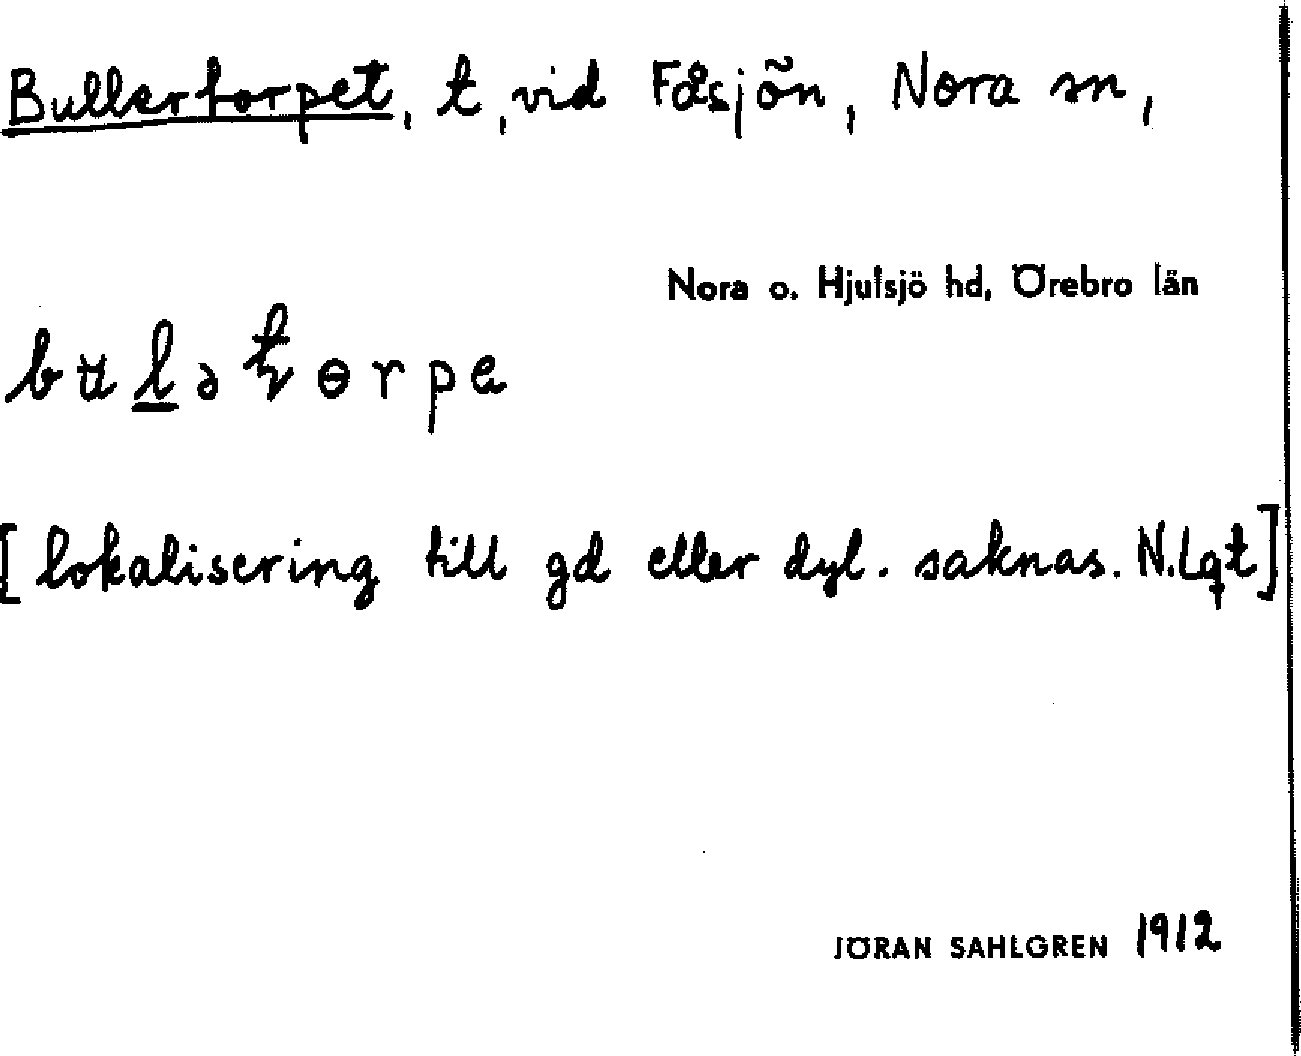 Bullertorpet, t, vid Fåsjön, Nora sn,
Nora o. Hjulsjö hd, Örebro län
[lokalisering till gd eller dyl. saknas. N.Lqt]
JÖRAN SAHLGREN 1912